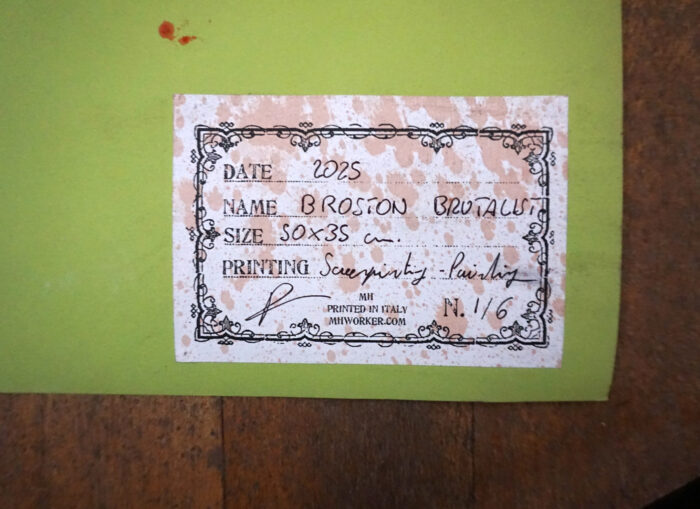 DATE 2025
NAME BROSTON BRUTALIST
SIZE 50x35 cm.
PRINTING Screenprinting - Painting
MH
PRINTED IN ITALY
MHWORKER.COM
N. 1/6